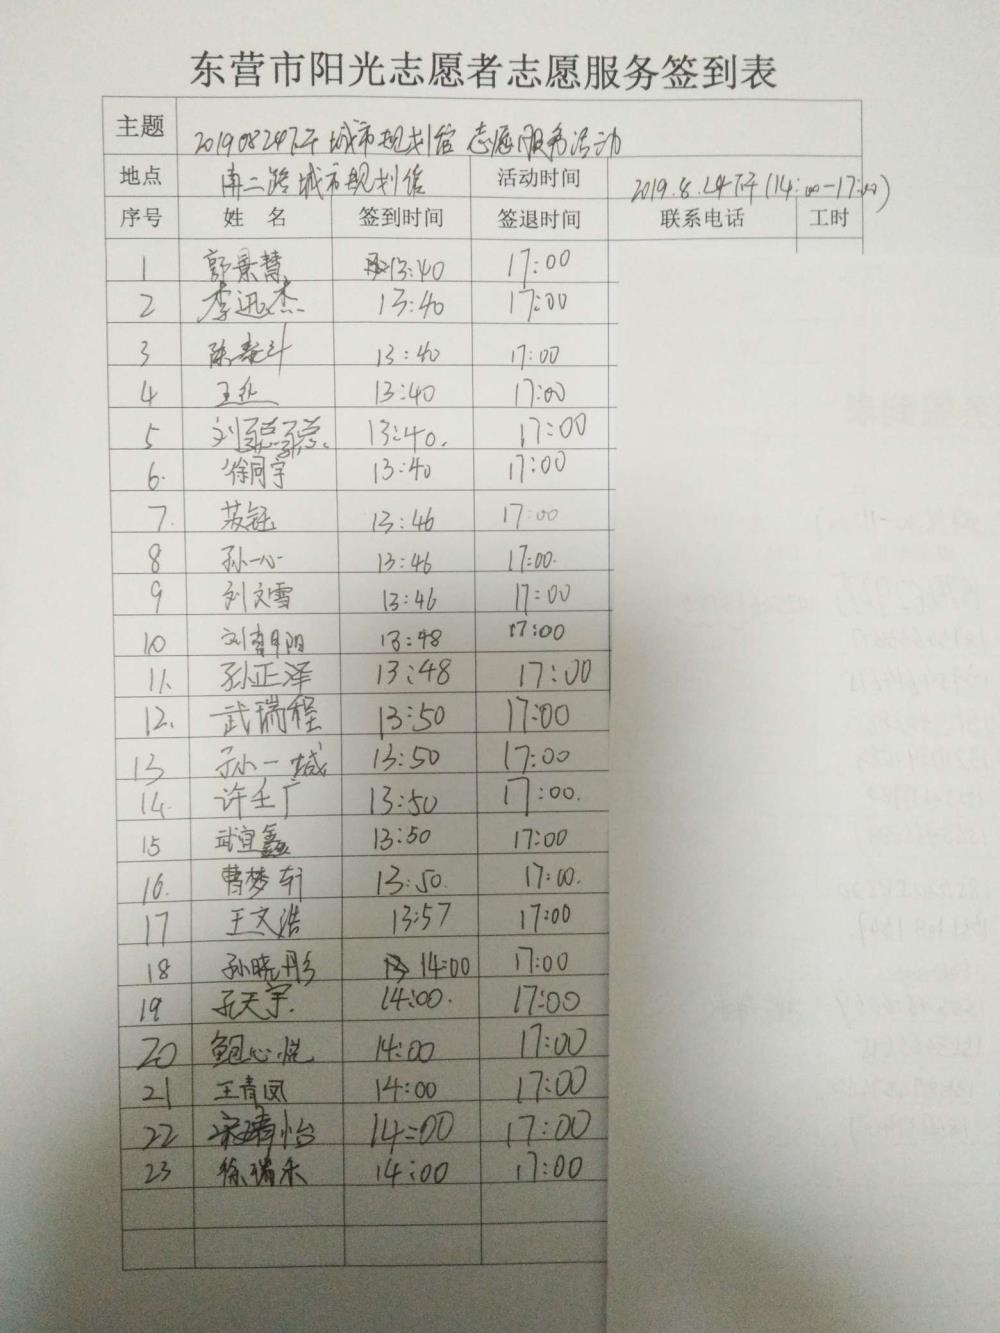 东营市阳光志愿者志愿服务签到表
主题 20190824下午 城市规划馆 志愿服务活动
地点 南二路城市规划馆 活动时间 2019.8.24下午(14:00-17:00)
序号 姓 名 签到时间 签退时间 联系电话 工时
1 郭景慧 13:40 17:00
2 李迅杰 13:40 17:00
3 陈 斗 13:40 17:00
4 王 13:40 17:00
5 刘 13:40. 17:00
6. 徐同宇 13:40 17:00
7. 苏钰 13:46 17:00
8 孙一心 13:46 17:00.
9 刘文雪 13:46 17:00
10 刘 阳 13:48 17:00
11. 孙正泽 13:48 17:00
12. 武瑞程 13:50 17:00
13 孙一城 13:50 17:00
14. 许壬广 13:50 17:00.
15 武宜鑫 13:50 17:00
16. 曹梦轩 13:50. 17:00.
17 王文浩 13:57 17:00
18 孙晓彤 14:00 17:00
19 孔天宇. 14:00. 17:00
20 鲍心恺 14:00 17:00
21 王青凤 14:00 17:00
22 宋靖怡 14:00 17:00
23 徐瑞禾 14:00 17:00